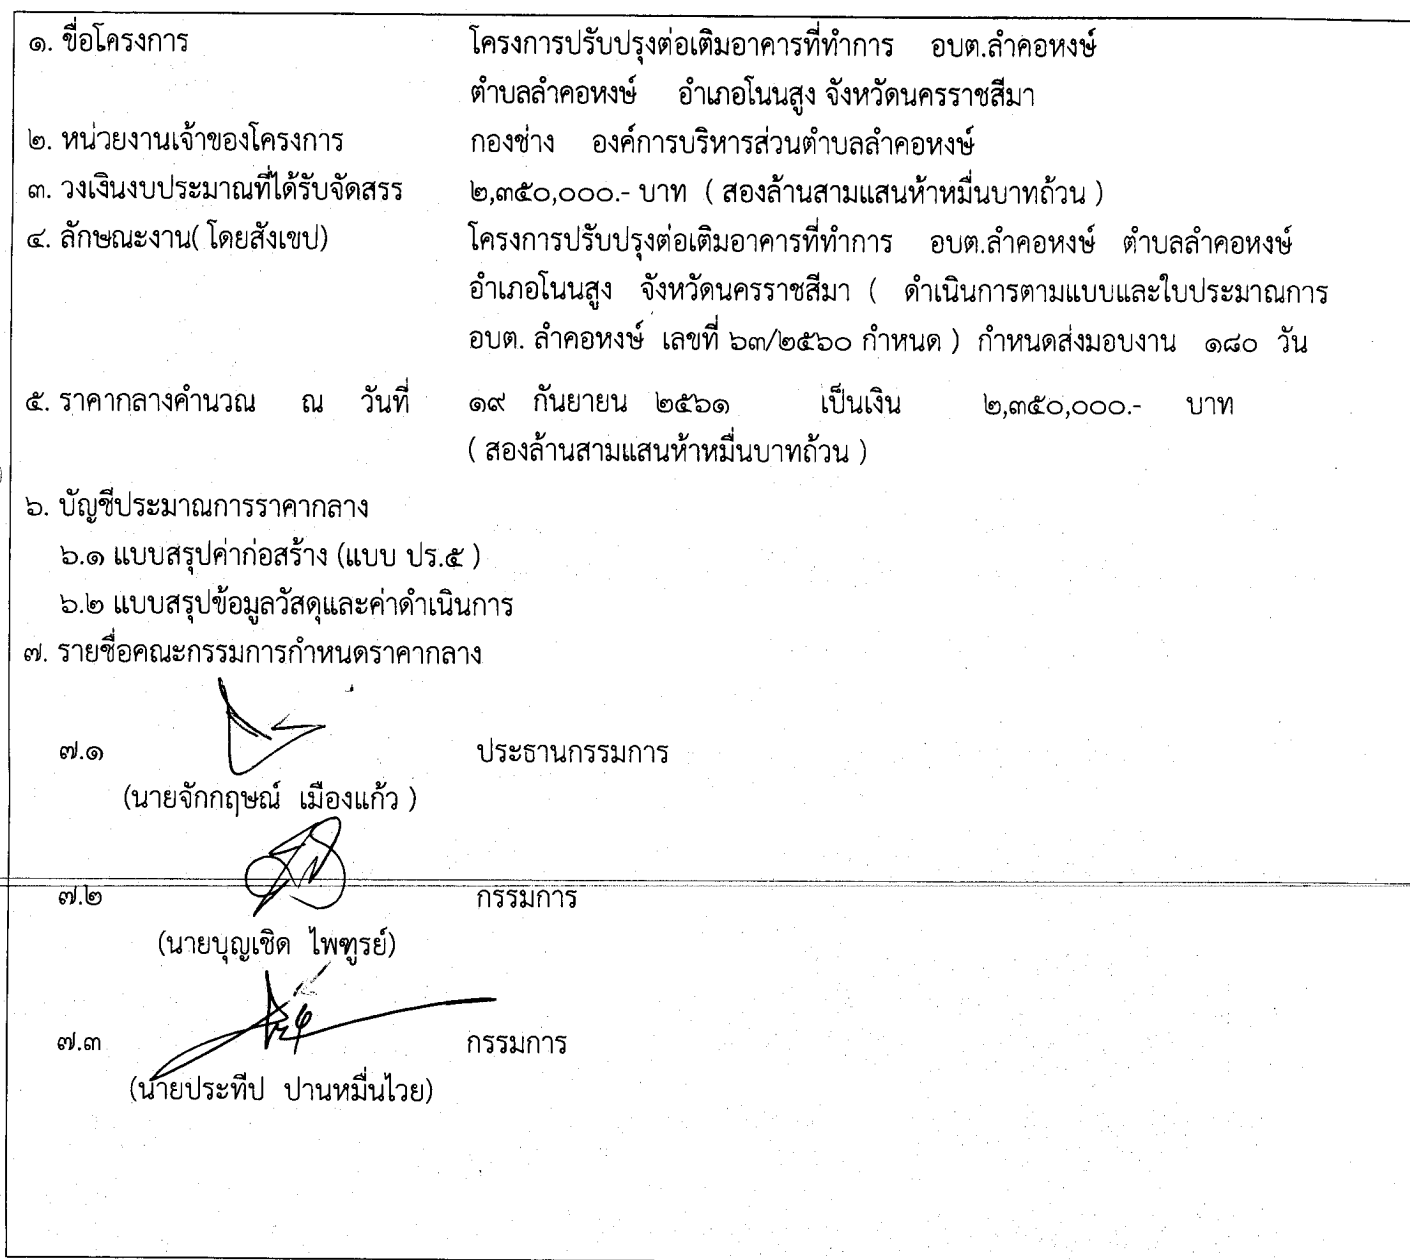 ๑. ชื่อโครงการ โครงการปรับปรุงต่อเติมอาคารที่ทำการ อบต.ลำคอหงษ์
ตำบลลำคอหงษ์ อำเภอโนนสูง จังหวัดนครราชสีมา
๒. หน่วยงานเจ้าของโครงการ กองช่าง องค์การบริหารส่วนตำบลลำคอหงษ์
๓. วงเงินงบประมาณที่ได้รับจัดสรร ๒,๓๕๐,๐๐๐.- บาท ( สองล้านสามแสนห้าหมื่นบาทถ้วน )
๔. ลักษณะงาน( โดยสังเขป) โครงการปรับปรุงต่อเติมอาคารที่ทำการ อบต.ลำคอหงษ์ ตำบลลำคอหงษ์
อำเภอโนนสูง จังหวัดนครราชสีมา ( ดำเนินการตามแบบและใบประมาณการ
อบต. ลำคอหงษ์ เลขที่ ๖๓/๒๕๖๐ กำหนด ) กำหนดส่งมอบงาน ๑๘๐ วัน
๕. ราคากลางคำนวณ ณ วันที่ ๑๙ กันยายน ๒๕๖๑ เป็นเงิน ๒,๓๕๐,๐๐๐.- บาท
( สองล้านสามแสนห้าหมื่นบาทถ้วน )
๖. บัญชีประมาณการราคากลาง
๖.๑ แบบสรุปค่าก่อสร้าง (แบบ ปร.๕ )
๖.๒ แบบสรุปข้อมูลวัสดุและค่าดำเนินการ
๗. รายชื่อคณะกรรมการกำหนดราคากลาง
๗.๑ ประธานกรรมการ
(นายจักกฤษณ์ เมืองแก้ว )
๗.๒ กรรมการ
(นายบุญเชิด ไพฑูรย์)
๗.๓ กรรมการ
(นายประทีป ปานหมื่นไวย)